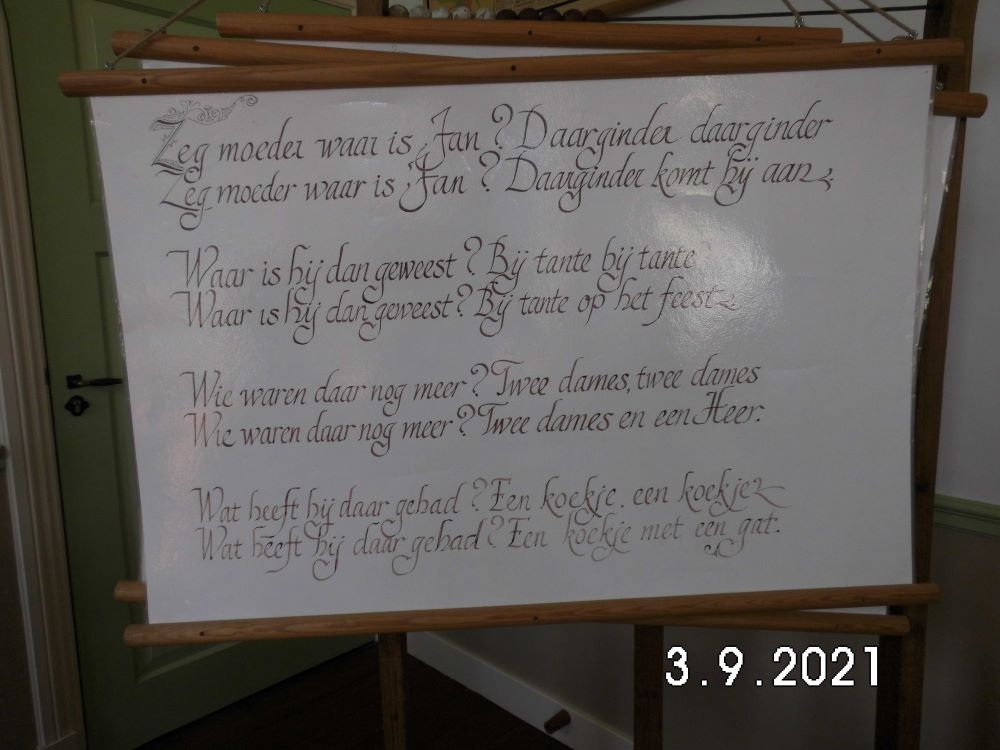 Zeg moeder waar is Jan? Daarginder daarginder
Zeg moeder waar is Jan? Daarginder komt hij aan.
Waar is hij dan geweest? Bij tante bij tante
Waar is hij dan geweest? Bij tante op het feest
Wie waren daar nog meer? Twee dames, twee dames
Wie waren daar nog meer? Twee dames en een Heer.
Wat heeft hij daar gehad? Een koekje, een koekje
Wat heeft hij daar gehad? Een koekje met een gat.
3.9.2021